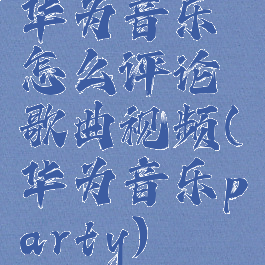 华为音乐
怎么评论
歌曲视频(
华为音乐p
arty)